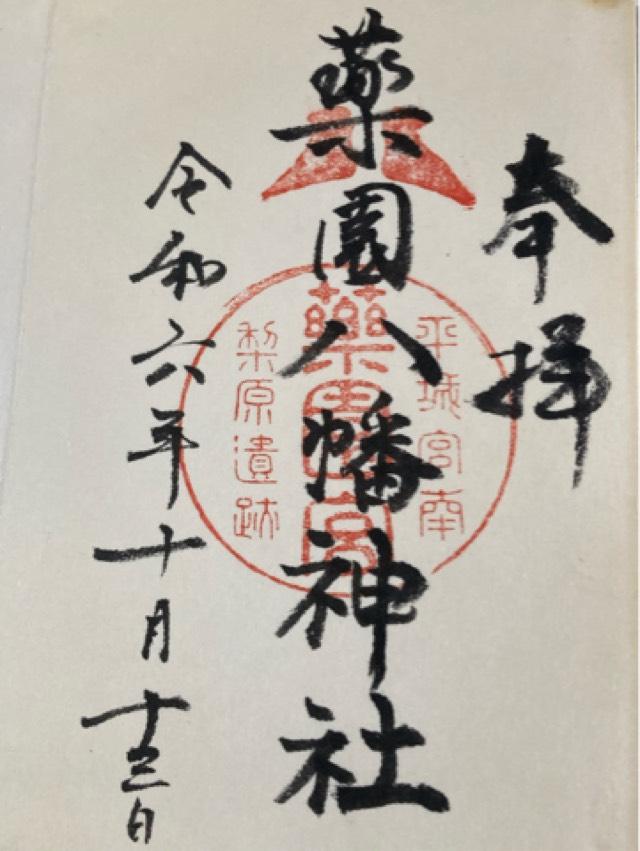 奉拝
薬園八幡神社
令和六年十月十三日
平城宮南
薬園宮
梨原遺跡